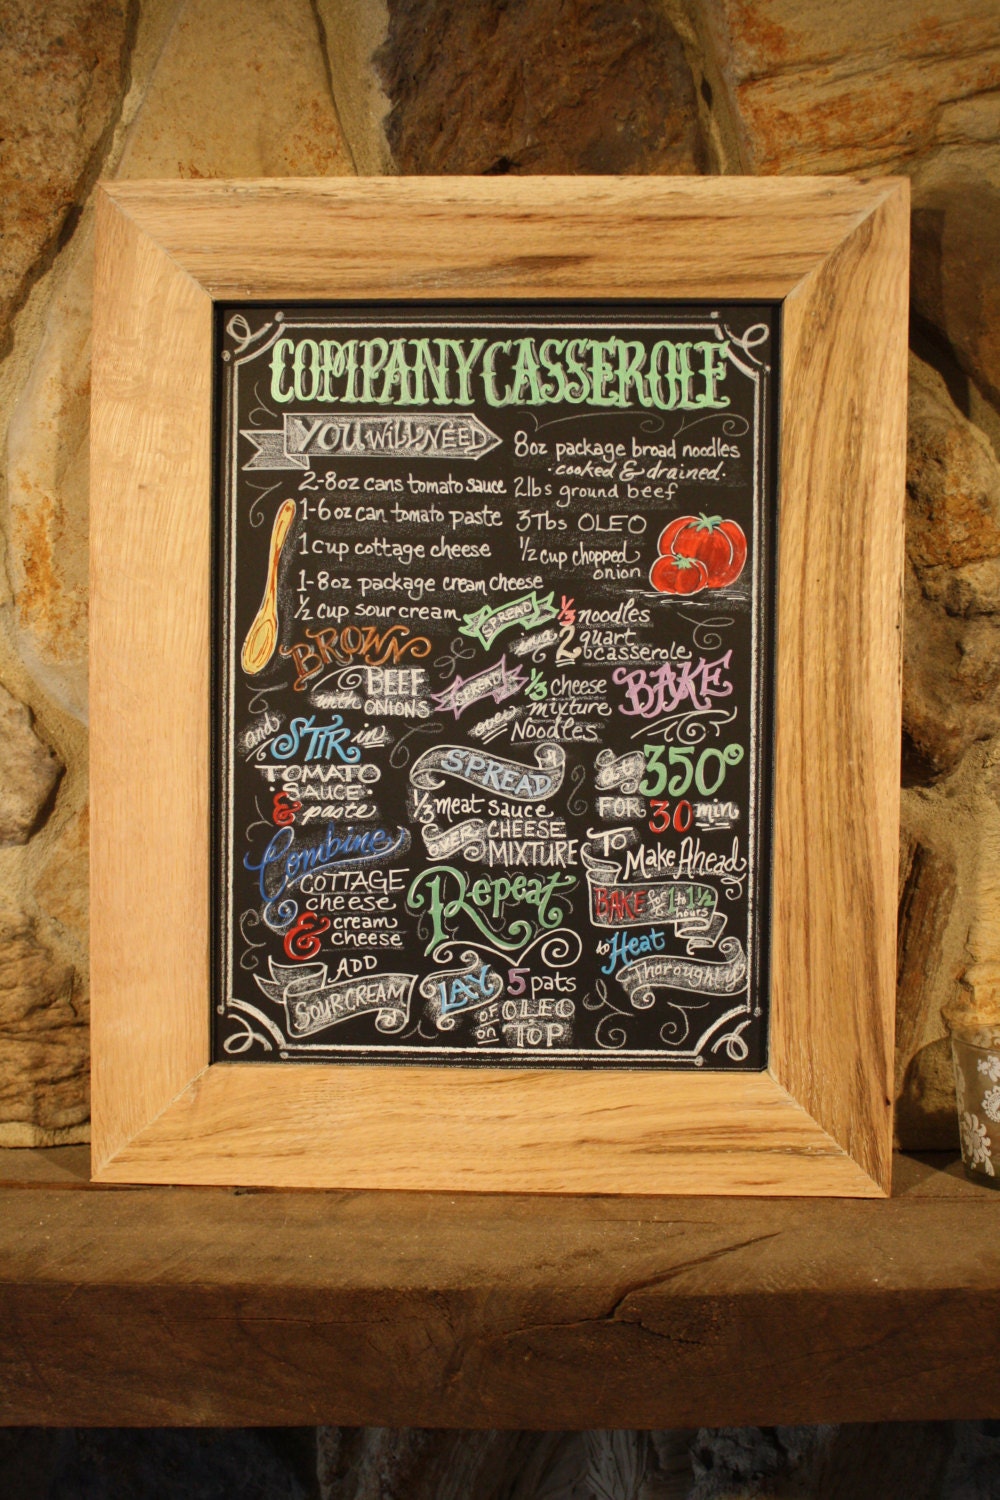 COMPANY CASSEROLE
YOU WILL NEED
2-8oz cans tomato sauce
1-6oz can tomato paste
1 cup cottage cheese
1-8oz package cream cheese
½ cup sour cream
8oz package broad noodles
·cooked & drained·
2lbs ground beef
3Tbs OLEO
½ cup chopped
onion
BROWN
BEEF
with ONIONS
and STIR in
TOMATO
·SAUCE·
& paste
Combine
COTTAGE
cheese
& cream
cheese
ADD
SOUR CREAM
SPREAD ⅓ noodles
in a 2 quart
casserole
SPREAD ⅓ cheese
over mixture
Noodles
SPREAD
⅓ meat sauce
OVER CHEESE
MIXTURE
Repeat
LAY 5 pats
of OLEO
on TOP
BAKE
at 350°
FOR 30 min
TO
Make Ahead
BAKE for 1 to 1½
hours
to Heat
Thoroughly